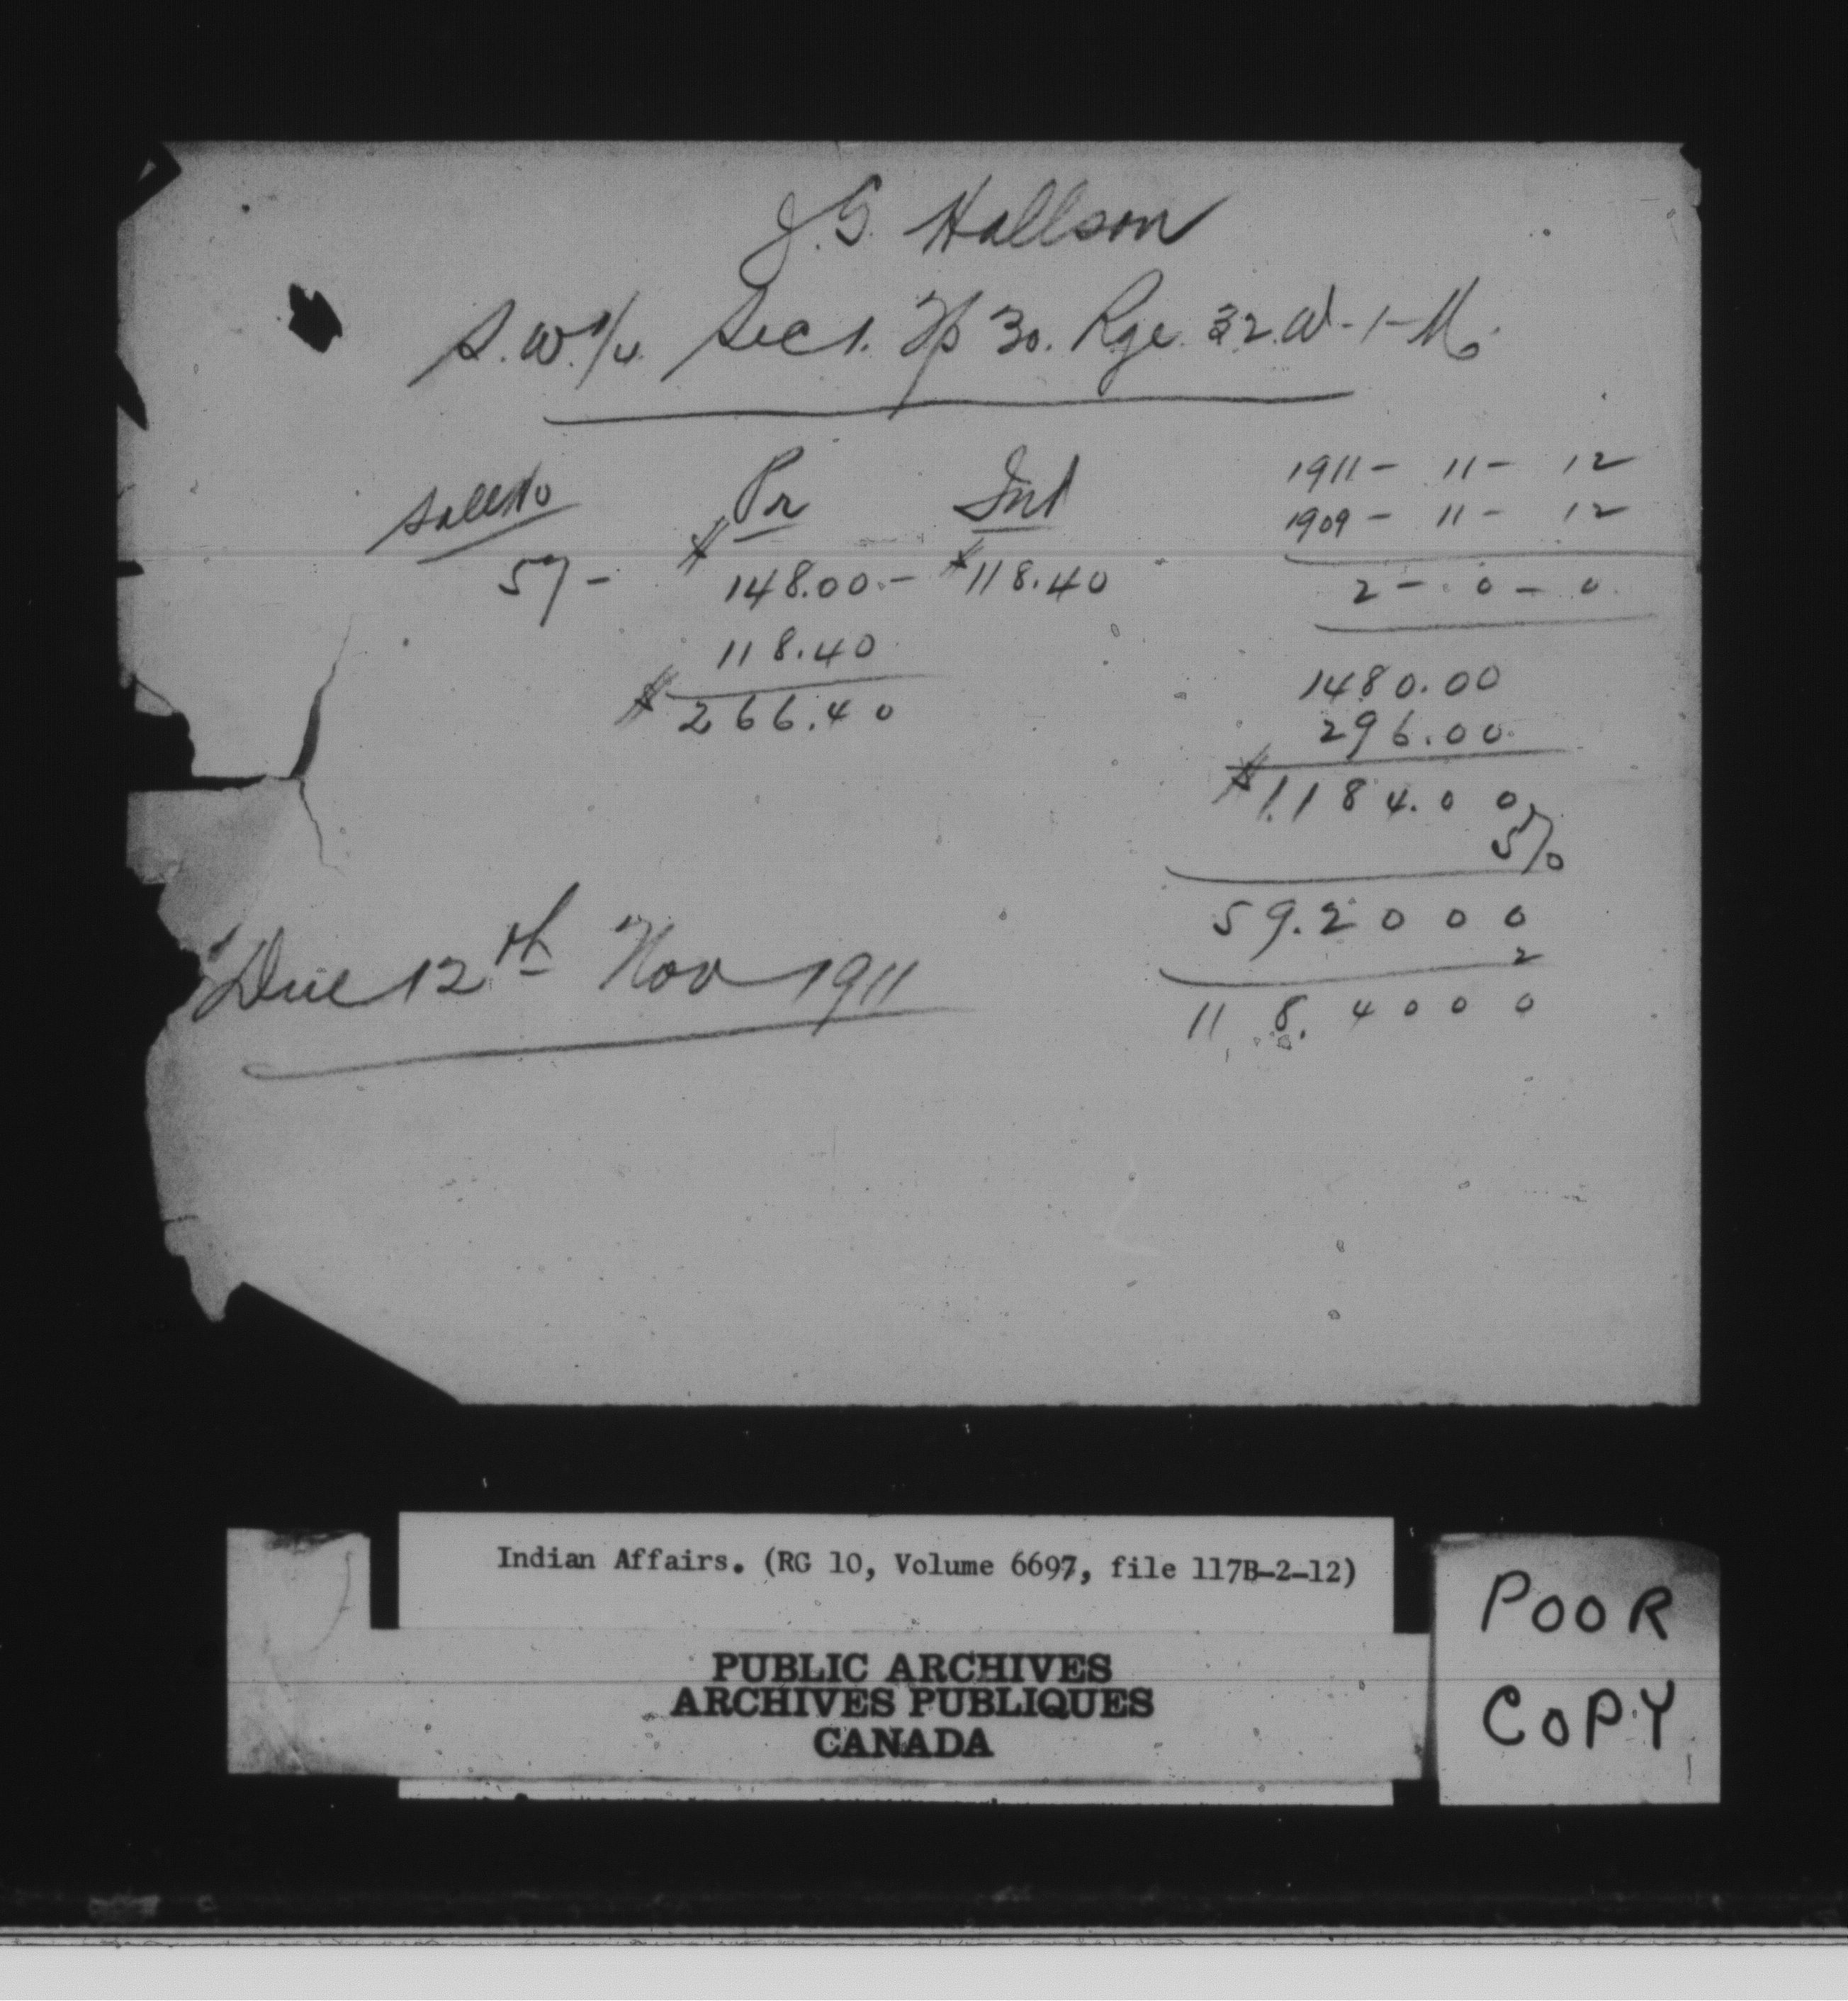 J.G. Hallson
S.W.¼ Sec 1. Tp 30. Rge. 32.W-1-M.
Sale No Pr Int
57- $148.00- $118.40
118.40
$266.40
1911- 11- 12
1909- 11- 12
2- 0- 0.
1480.00
296.00
$1,184.00
5%
59.2000
2
118.4000
Due 12th Nov 1911
Indian Affairs. (RG 10, Volume 6697, file 117B-2-12)
PUBLIC ARCHIVES
ARCHIVES PUBLIQUES
CANADA
POOR
COPY